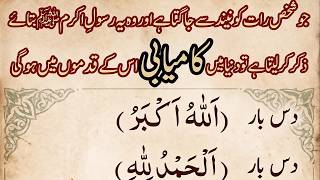 جو شخص رات کو نیند سے جاگتا ہے اور وہ یہ رسولِ اکرم ﷺ بتائے
ذکر کر لیتا ہے تو دنیا میں کامیابی اس کے قدموں میں ہوگی
دس بار (اَللّٰهُ اَكْبَرُ)
دس بار (اَلْحَمْدُ لِلّٰهِ)